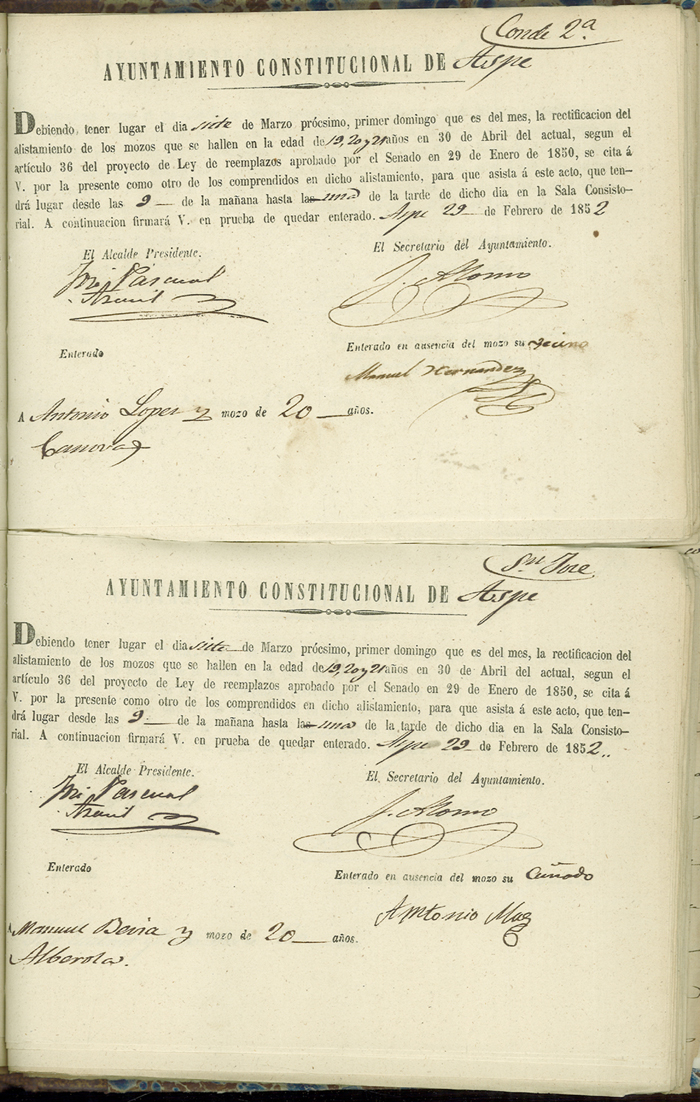 Conde 2.ª
AYUNTAMIENTO CONSTITUCIONAL DE Aspe
Debiendo tener lugar el dia siete de Marzo prócsimo, primer domingo que es del mes, la rectificacion del
alistamiento de los mozos que se hallen en la edad de 19, 20 y 21 años en 30 de Abril del actual, segun el
artículo 36 del proyecto de Ley de reemplazos aprobado por el Senado en 29 de Enero de 1850, se cita á
V. por la presente como otro de los comprendidos en dicho alistamiento, para que asista á este acto, que ten-
drá lugar desde las 9 de la mañana hasta la una de la tarde de dicho dia en la Sala Consisto-
rial. A continuacion firmará V. en prueba de quedar enterado. Aspe 29 de Febrero de 1852
El Alcalde Presidente.
El Secretario del Ayuntamiento.
Pascual
J. Alonso
Enterado
Enterado en ausencia del mozo su vecino
Manuel Hernandez
A Antonio Lopez y mozo de 20 años.
Canovas
Sn. Jose
AYUNTAMIENTO CONSTITUCIONAL DE Aspe
Debiendo tener lugar el dia siete de Marzo prócsimo, primer domingo que es del mes, la rectificacion del
alistamiento de los mozos que se hallen en la edad de 19, 20 y 21 años en 30 de Abril del actual, segun el
artículo 36 del proyecto de Ley de reemplazos aprobado por el Senado en 29 de Enero de 1850, se cita á
V. por la presente como otro de los comprendidos en dicho alistamiento, para que asista á este acto, que ten-
drá lugar desde las 9 de la mañana hasta la una de la tarde de dicho dia en la Sala Consisto-
rial. A continuacion firmará V. en prueba de quedar enterado. Aspe 29 de Febrero de 1852..
El Alcalde Presidente.
El Secretario del Ayuntamiento.
Pascual
J. Alonso
Enterado
Enterado en ausencia del mozo su Cuñado
Antonio Mas
A Manuel Bevia y mozo de 20 años.
Alberola.